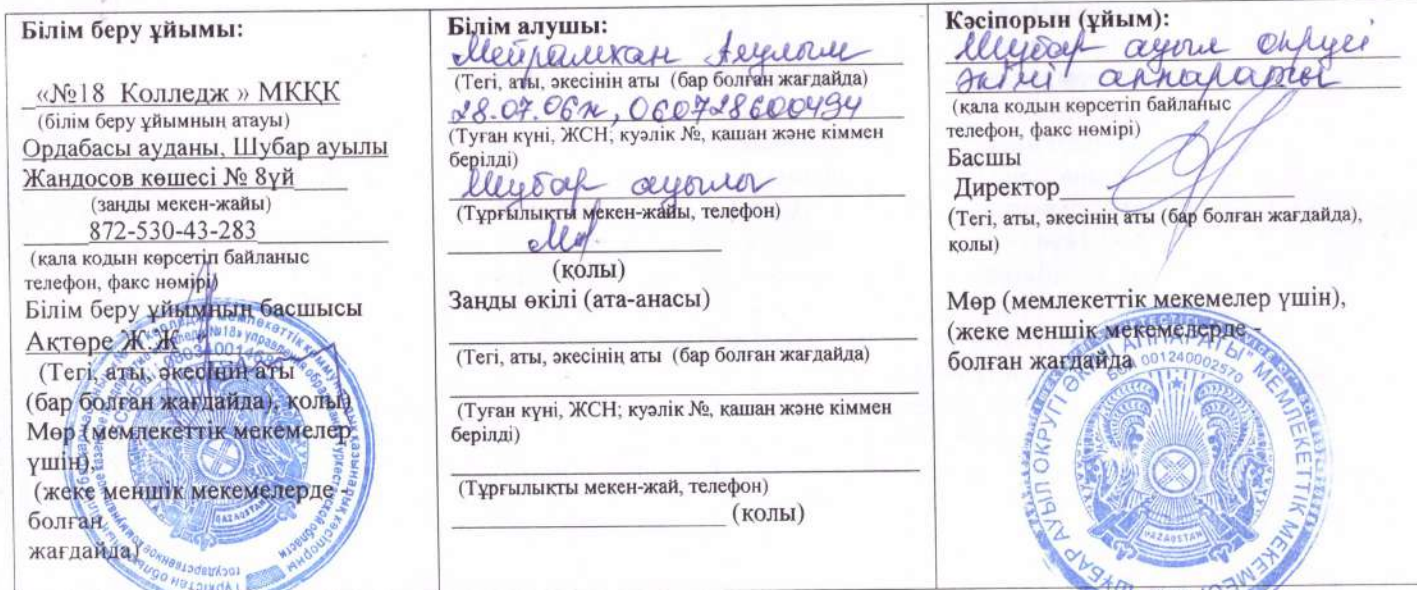 Білім беру ұйымы:
«№18 Колледж » МКҚК
(білім беру ұйымның атауы)
Ордабасы ауданы, Шубар ауылы
Жандосов көшесі № 8үй
(заңды мекен-жайы)
872-530-43-283
(кала кодын көрсетіп байланыс
телефон, факс нөмірі)
Білім беру ұйымның басшысы
Ақтөре Ж.Ж
(Тегі, аты, әкесінің аты
(бар болған жағдайда), қолы)
Мөр (мемлекеттік мекемелер
үшін),
(жеке меншік мекемелерде
болған
жағдайда)
Білім алушы:
Мейрамхан Аяулым
(Тегі, аты, әкесінің аты (бар болған жағдайда)
28.07.06ж, 060728600494
(Туған күні, ЖСН; куәлік №, қашан және кіммен
берілді)
Шубар ауылы
(Тұрғылықты мекен-жайы, телефон)
(қолы)
Заңды өкілі (ата-анасы)
(Тегі, аты, әкесінің аты (бар болған жағдайда)
(Туған күні, ЖСН; куәлік №, қашан және кіммен
берілді)
(Тұрғылықты мекен-жай, телефон)
(қолы)
Кәсіпорын (ұйым):
Шубар ауыл округі
әкімі аппараты
(кала кодын көрсетіп байланыс
телефон, факс нөмірі)
Басшы
Директор
(Тегі, аты, әкесінің аты (бар болған жағдайда),
қолы)
Мөр (мемлекеттік мекемелер үшін),
(жеке меншік мекемелерде -
болған жағдайда
ШҰБАР АУЫЛ ОКРУГІ ӘКІМІ АППАРАТЫ" МЕМЛЕКЕТТІК МЕКЕМЕСІ
БСН 001240002570
QAZAQSTAN